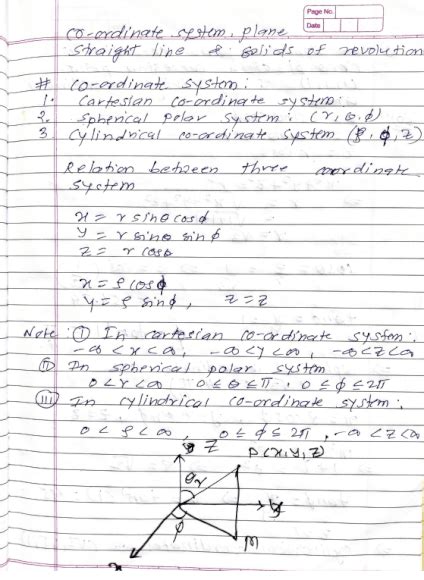 Page No.
Date
co-ordinate system, plane,
straight line & solids of revolution
# co-ordinate system:
1. Cartesian co-ordinate system:
2. spherical polar system: (r, θ, ϕ)
3 cylindrical co-ordinate system (ρ, ϕ, z)
Relation between three coordinate
system
x = r sinθ cosϕ
y = r sinθ sinϕ
z = r cosθ
x = ρ cosϕ
y = ρ sinϕ, z = z
Note: (i) In cartesian co-ordinate system:
-∞ < x < ∞, -∞ < y < ∞, -∞ < z < ∞
(ii) In spherical polar system
0 < r < ∞ 0 ≤ θ ≤ π, 0 ≤ ϕ ≤ 2π
(iii) In cylindrical co-ordinate system:
0 < ρ < ∞, 0 ≤ ϕ ≤ 2π, -∞ < z < ∞
Z P(x,y,z)
θ r
y
ϕ
M
x